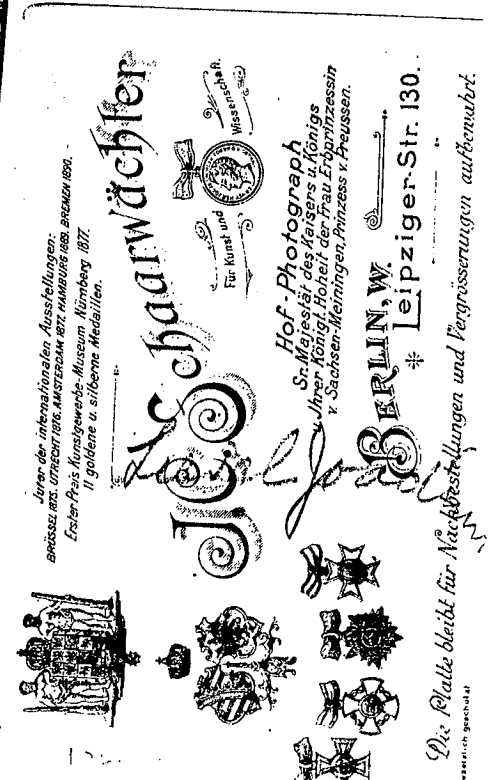 Juror der internationalen Ausstellungen:
BRÜSSEL 1875. UTRECHT 1876. AMSTERDAM 1877. HAMBURG 1889. BREMEN 1890.
Erster Preis Kunstgewerbe-Museum Nürnberg 1877.
11 goldene u. silberne Medaillen.
J.C. Schaarwächter
Für Kunst und Wissenschaft.
Hof-Photograph
Sr. Majestät des Kaisers u. Königs
u. Ihrer Königl. Hoheit der Frau Erbprinzessin
v. Sachsen-Meiningen, Prinzess v. Preussen.
BERLIN, W.
Leipziger-Str. 130.
Die Platte bleibt für Nachbestellungen und Vergrösserungen aufbewahrt.